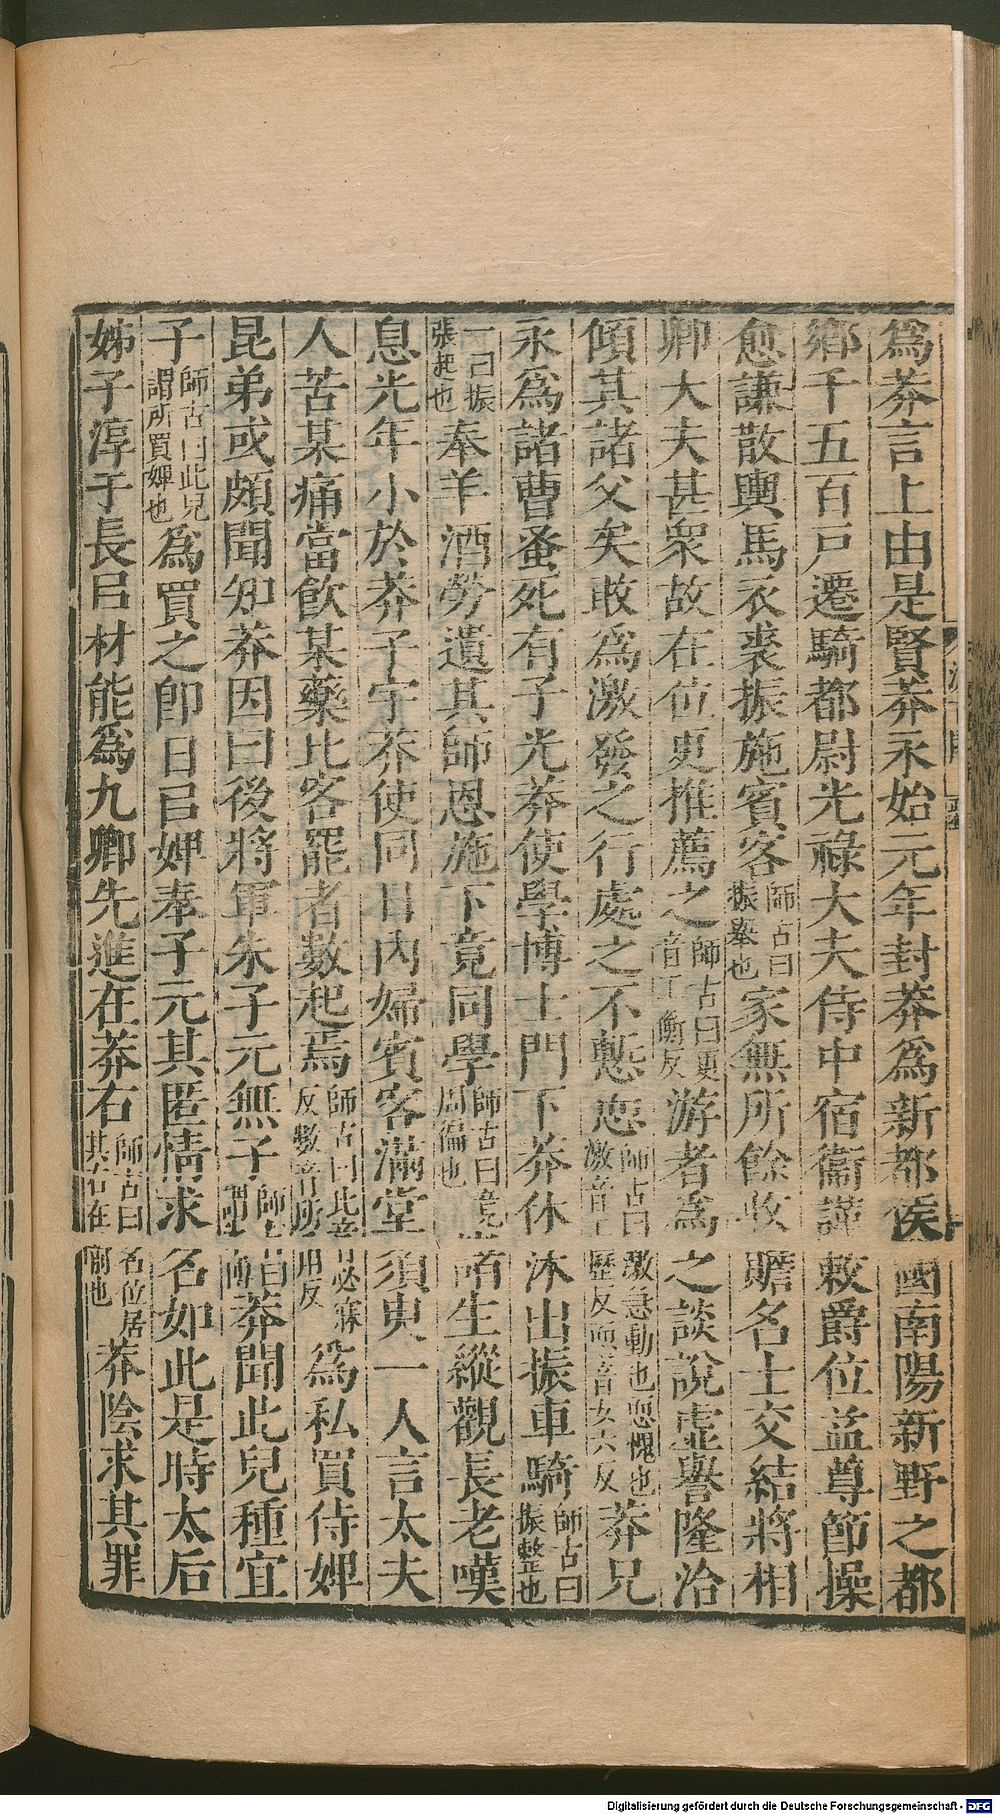 爲莽言上由是賢莽永始元年封莽爲新都侯國南陽新野之都
鄉千五百戶遷騎都尉光祿大夫侍中宿衞謹敕爵位益尊節操
愈謙散輿馬衣裘振施賓客師古曰振舉也家無所餘收贍名士交結將相
卿大夫甚衆故在位更推薦之師古曰更音工衡反游者爲之談說虛譽隆洽
傾其諸父矣敢爲激發之行處之不慙恧師古曰激音工歷反而音女六反激急動也恧愧也莽兄
永爲諸曹蚤死有子光莽使學博士門下莽休沐出振車騎師古曰振整也
一曰振張起也奉羊酒勞遺其師恩施下竟同學師古曰竟周徧也諸生縱觀長老嘆
息光年小於莽子宇莽使同日內婦賓客滿堂須臾一人言太夫
人苦某痛當飲某藥比客罷者數起焉師古曰比音必寐反數音所角反爲私買侍婢
昆弟或頗聞知莽因曰後將軍朱子元無子莽聞此兒種宜
子師古曰此兒謂所買婢也爲買之卽日㠯婢奉子元其匿情求名如此是時太后
姊子淳于長㠯材能爲九卿先進在莽右師古曰名位居其右在前也莽陰求其罪
Digitalisierung gefördert durch die Deutsche Forschungsgemeinschaft - DFG